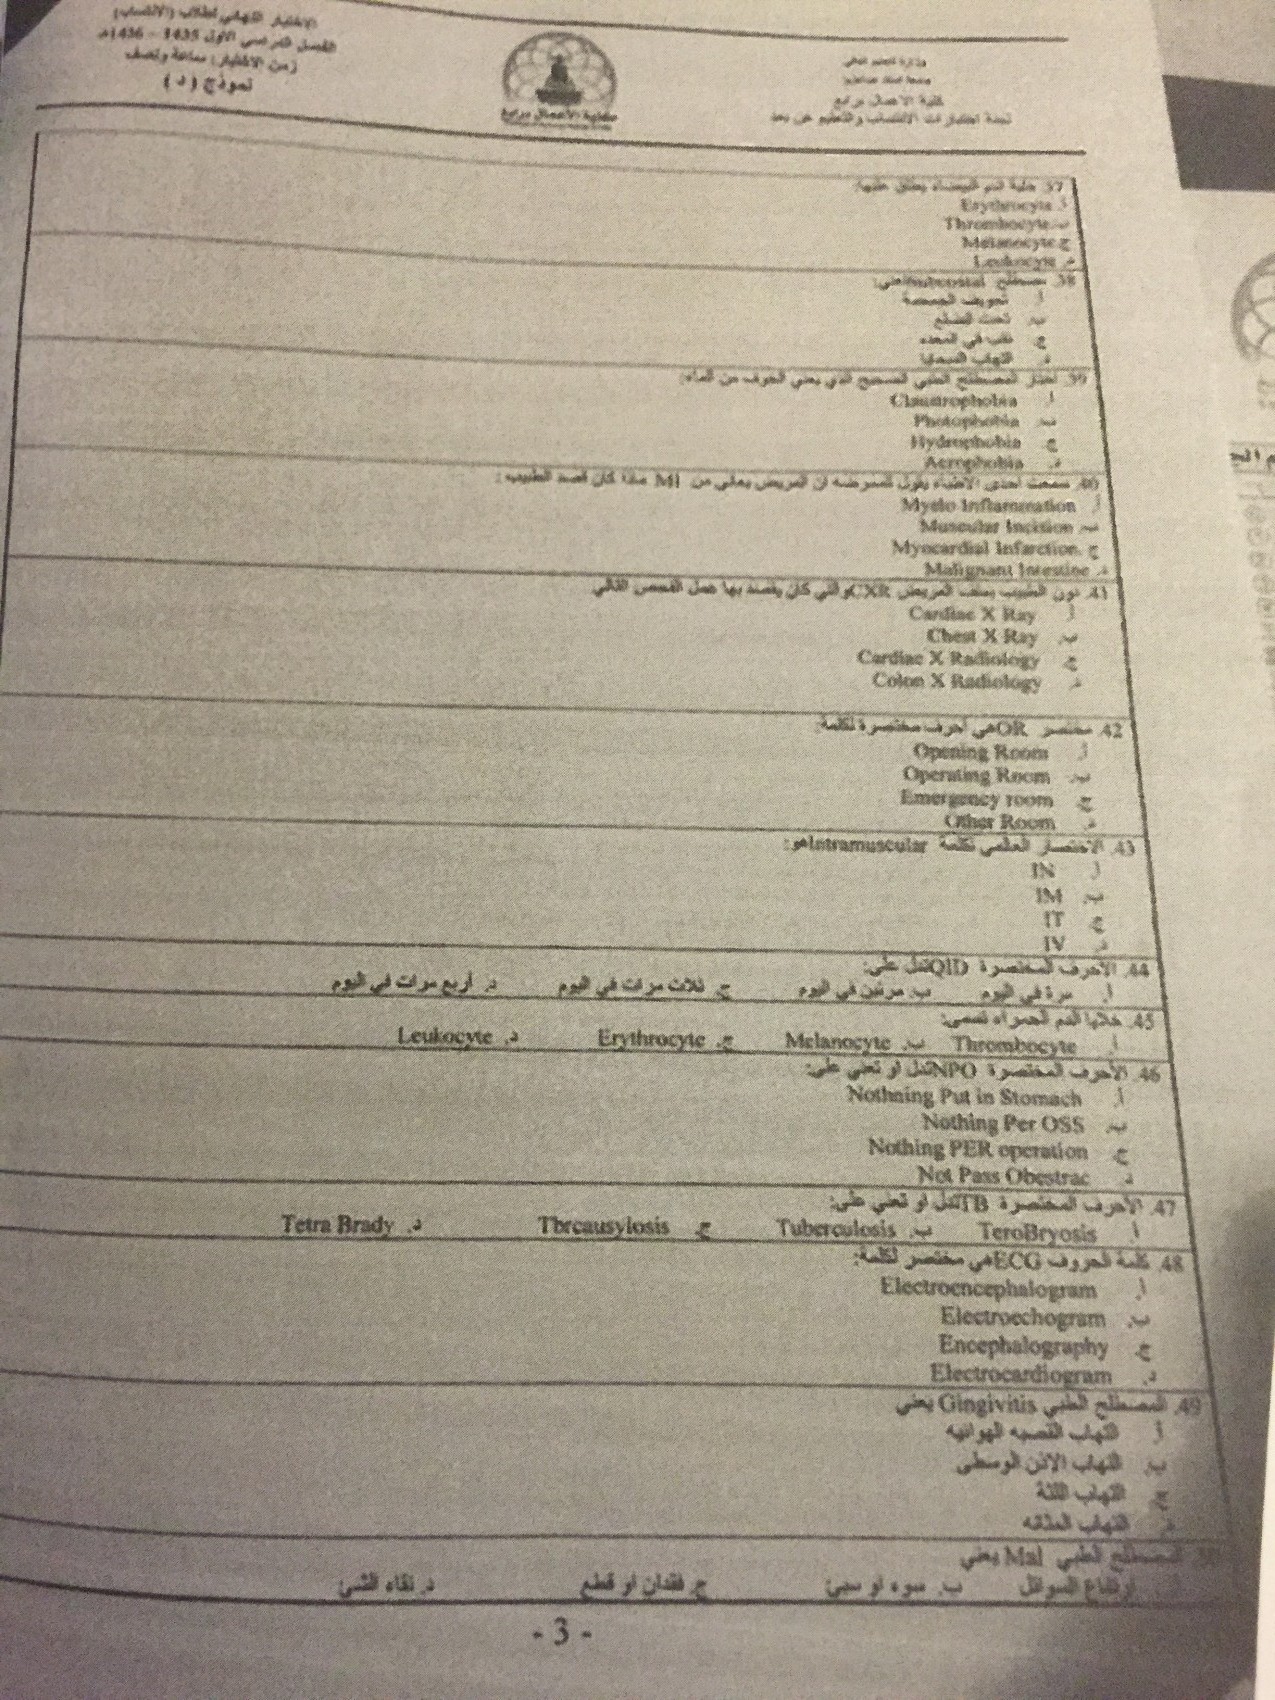 وزارة التعليم العالي
جامعة الملك عبدالعزيز
كلية الأعمال برابغ
لجنة اختبارات الانتساب والتعليم عن بعد
كلية الأعمال برابغ
الاختبار النهائي لطلاب (الانتساب)
الفصل الدراسي الأول 1435 - 1436هـ
زمن الاختبار: ساعة ونصف
نموذج ( د )
37. خلية الدم البيضاء يطلق عليها:
أ. Erythrocyte
ب. Thrombocyte
ج. Melanocyte
د. Leukocyte
38. مصطلح Subcostal تعني:
أ. تجويف الجمجمة
ب. تحت الضلع
ج. ثقب في المعده
د. التهاب السحايا
39. اختار المصطلح الطبي الصحيح الذي يعني الخوف من الماء:
أ. Claustrophobia
ب. Photophobia
ج. Hydrophobia
د. Acrophobia
40. سمعت احدى الاطباء يقول للممرضه ان المريض يعاني من MI ماذا كان قصد الطبيب :
أ. Myelo Inflammation
ب. Muscular Incision
ج. Myocardial Infarction.
د. Malignant Intestine
41. دون الطبيب بملف المريض CXR والتي كان يقصد بها عمل الفحص التالي
أ. Cardiac X Ray
ب. Chest X Ray
ج. Cardiac X Radiology
د. Colon X Radiology
42. مختصر OR هي أحرف مختصرة لكلمة:
أ. Opening Room
ب. Operating Room
ج. Emergency room
د. Other Room
43. الاختصار العالمي لكلمة Intramuscular هو:
أ. IN
ب. IM
ج. IT
د. IV
44. الأحرف المختصرة QID تدل على:
أ. مرة في اليوم ب. مرتين في اليوم ج. ثلاث مرات في اليوم د. أربع مرات في اليوم
45. خلايا الدم الحمراء تسمى:
أ. Thrombocyte ب. Melanocyte ج. Erythrocyte د. Leukocyte
46. الأحرف المختصرة NPO تدل او تعني على:
أ. Nothning Put in Stomach
ب. Nothing Per OSS
ج. Nothing PER operation
د. Not Pass Obestrac
47. الأحرف المختصرة TB تدل او تعني على:
أ. TeroBryosis ب. Tuberculosis ج. Tbrcausylosis د. Tetra Brady
48. كلمة الحروف ECG هي مختصر لكلمة:
أ. Electroencephalogram
ب. Electroechogram
ج. Encephalography
د. Electrocardiogram
49. المصطلح الطبي Gingivitis يعني
أ. التهاب القصبه الهوائيه
ب. التهاب الاذن الوسطى
ج. التهاب اللثة
د. التهاب المثانه
المصطلح الطبي Mal يعني
ارتفاع السوائل ب. سوء او سيئ ج. فقدان او قطع د. نقاء الشئ
- 3 -